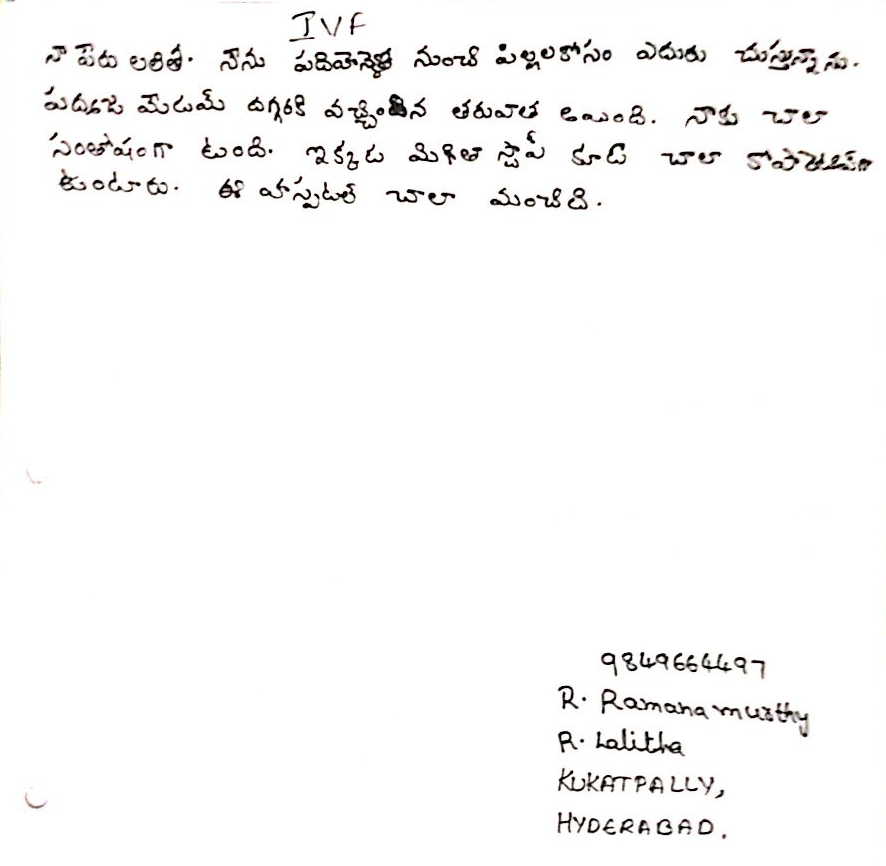 IVF
నా పేరు లలిత. నేను పదిహేనేళ్ల నుంచి పిల్లలకోసం ఎదురు చుస్తున్నాను.
మేడమ్ దగ్గరకి వచ్చిందిన తరువాత అయింది. నాకు చాలా
సంతోషంగా ఉంది. ఇక్కడ మిగితా స్టాప్ కూడ చాలా
ఉంటారు. ఈ హస్పటల్ చాలా మంచిది.
9849664497
R. Ramanamurthy
R. Lalitha
KUKATPALLY,
HYDERABAD.